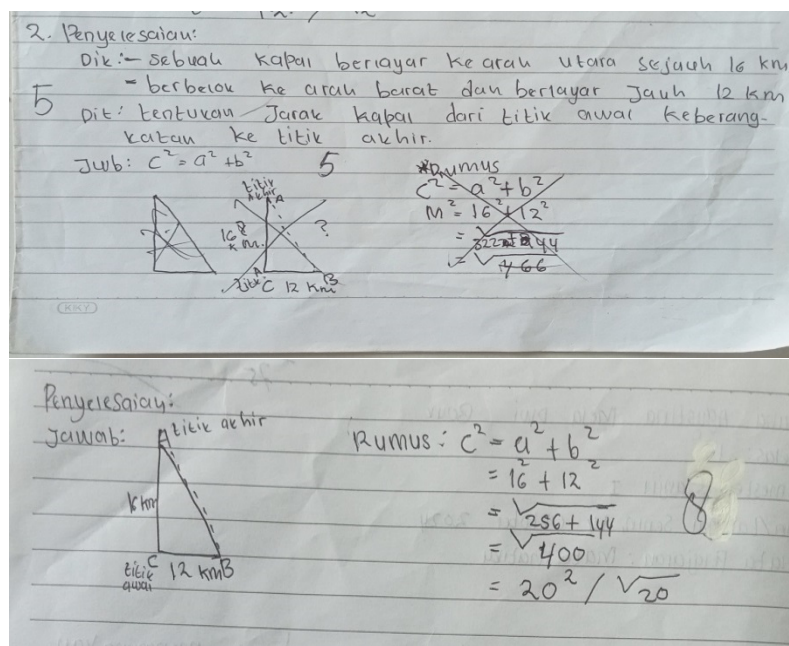 2. Penyelesaian:
Dik :- sebuah kapal berlayar ke arah utara sejauh 16 km
- berbelok ke arah barat dan berlayar jauh 12 km
5
Dit : tentukan Jarak kapal dari titik awal keberang-
katan ke titik akhir.
Jwb: c² = a² + b²
5
titik akhir A
16 km
?
titik C 12 km B
*Rumus
c² = a² + b²
M² = 16² + 12²
KIKY
Penyelesaian:
Jawab:
A titik akhir
16 km
titik awal
C 12 km B
Rumus : c² = a² + b²
= 16² + 12²
= √256 + 144
= √400
= 20² / √20
8